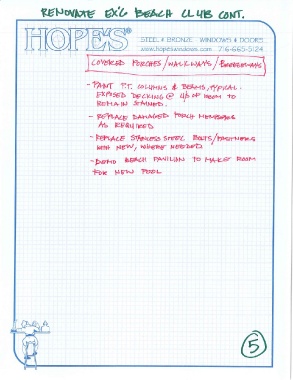 RENOVATE EX'G BEACH CLUB CONT.
HOPE'S®
STEEL & BRONZE WINDOWS & DOORS
www.hopeswindows.com 716-665-5124
COVERED PORCHES/WALKWAYS/BREEZEWAYS
- PAINT P.T. COLUMNS & BEAMS, TYPICAL.
EXPOSED DECKING @ U/S OF ROOF TO
REMAIN STAINED.
- REPLACE DAMAGED PORCH MEMBERS
AS REQUIRED
- REPLACE STAINLESS STEEL BOLTS/FASTENERS
WITH NEW, WHERE NEEDED
- DEMO BEACH PAVILION TO MAKE ROOM
FOR NEW POOL
5